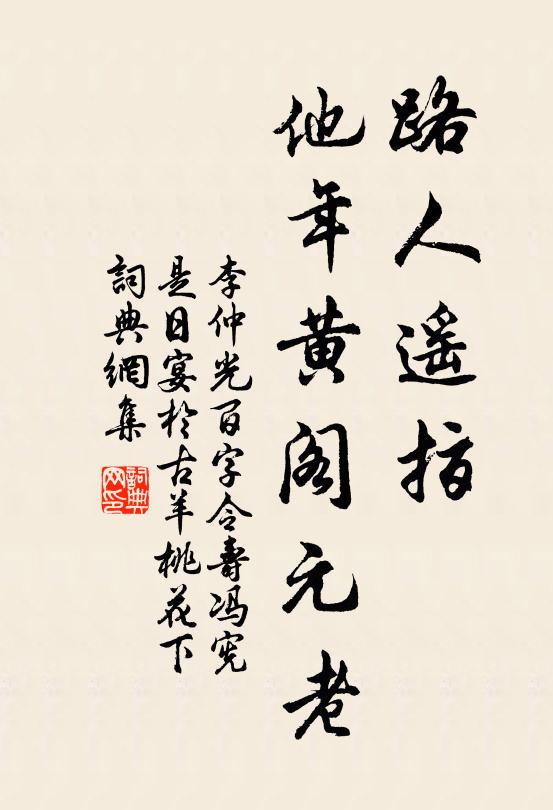 路人遥指
他年黄阁元老
李仲光百字令壽馮宪
是日宴於古羊桃花下
詞典網集
詞典網印